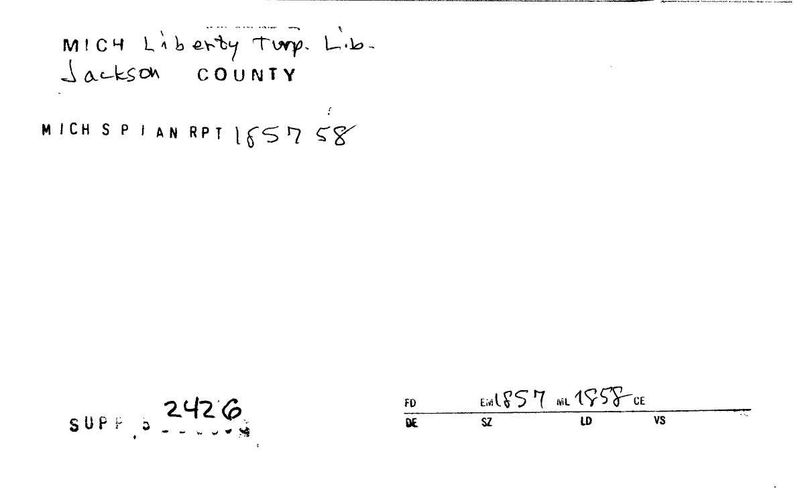 MICH Liberty Twp. Lib.
Jackson COUNTY
MICH S P I AN RPT 1857 58
SUPP 2426
FD EM 1857 ML 1858 CE
DE SZ LD VS